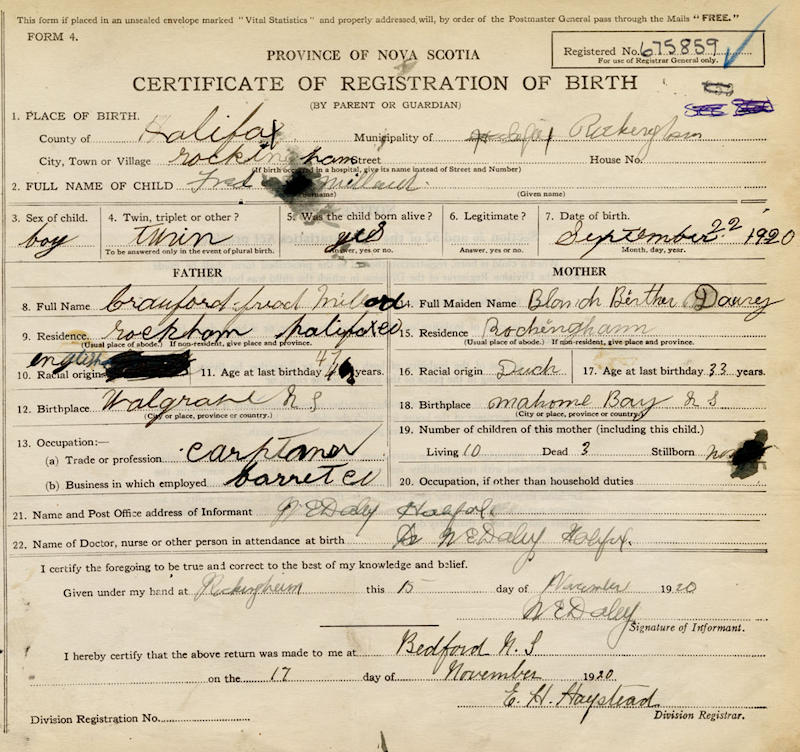 This form if placed in an unsealed envelope marked "Vital Statistics" and properly addressed, will, by order of the Postmaster General pass through the Mails "FREE."
FORM 4.
Registered No. 675859
For use of Registrar General only.
PROVINCE OF NOVA SCOTIA
CERTIFICATE OF REGISTRATION OF BIRTH
(BY PARENT OR GUARDIAN)
1. PLACE OF BIRTH.
County of Halifax Municipality of Rockingham
City, Town or Village rockingham Street House No.
(If birth occurred in a hospital, give its name instead of Street and Number)
2. FULL NAME OF CHILD Fred
(Surname) (Given name)
3. Sex of child. 4. Twin, triplet or other? 5. Was the child born alive? 6. Legitimate? 7. Date of birth.
boy twin yes September 22 1920
To be answered only in the event of plural birth. Answer, yes or no. Answer, yes or no. Month, day, year.
FATHER MOTHER
8. Full Name Crauford fread 14. Full Maiden Name Blanch
9. Residence rockham halifax co 15. Residence Rockinghann
(Usual place of abode.) If non-resident, give place and province. (Usual place of abode.) If non-resident, give place and province.
english
10. Racial origin 11. Age at last birthday years. 16. Racial origin Duch 17. Age at last birthday 33 years.
12. Birthplace Walgrave N S 18. Birthplace mahome Bay N S
(City or place, province or country.) (City or place, province or country.)
13. Occupation:— 19. Number of children of this mother (including this child.)
(a) Trade or profession carptaner Living 10 Dead 3 Stillborn
(b) Business in which employed barret co 20. Occupation, if other than household duties
21. Name and Post Office address of Informant W E Daley Halifax.
22. Name of Doctor, nurse or other person in attendance at birth Dr W E Daley Halifax.
I certify the foregoing to be true and correct to the best of my knowledge and belief.
Given under my hand at Rockingham this 15 day of November 1920
W E Daley
Signature of Informant.
I hereby certify that the above return was made to me at Bedford N. S
on the 17 day of November 1920
E. H. Haystead
Division Registration No. Division Registrar.